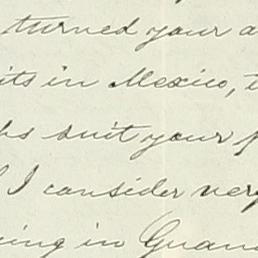 turned your a
its in Mexico, t
bs suit your p
I consider very
ing in Guana